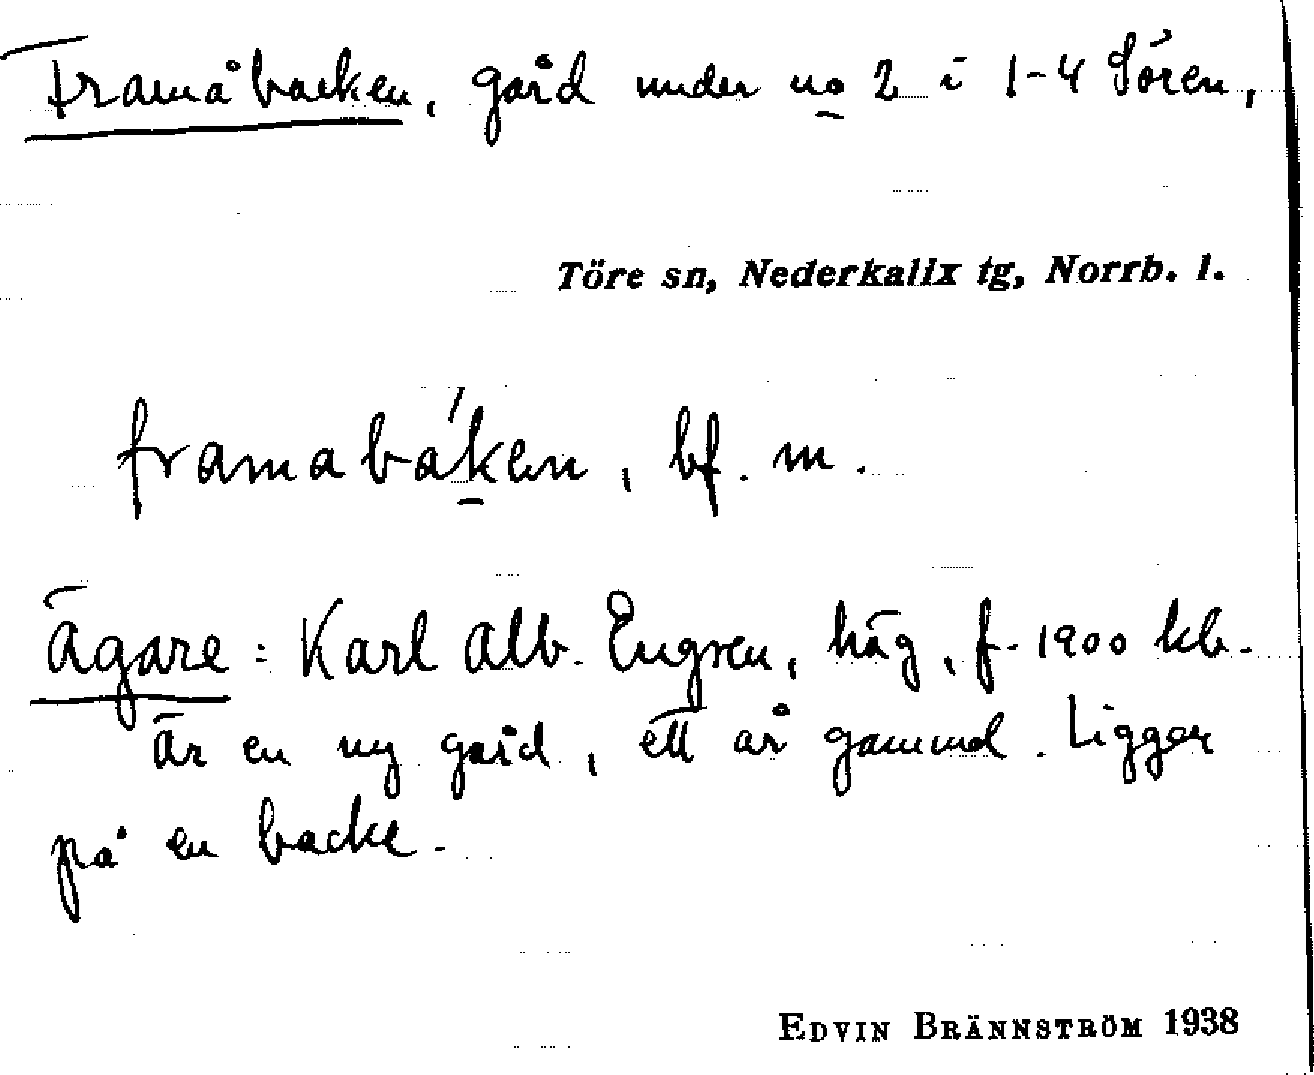 Framåbacken, gård under no 2 i 1-4 Sören,
Töre sn, Nederkalix tg, Norrb. l.
framabáken, bf. m.
Ägare: Karl Alb. Engren, häg, f. 1900 kb.
Är en ny gård, ett år gammal. Ligger
på en backe.
EDVIN BRÄNNSTRÖM 1938